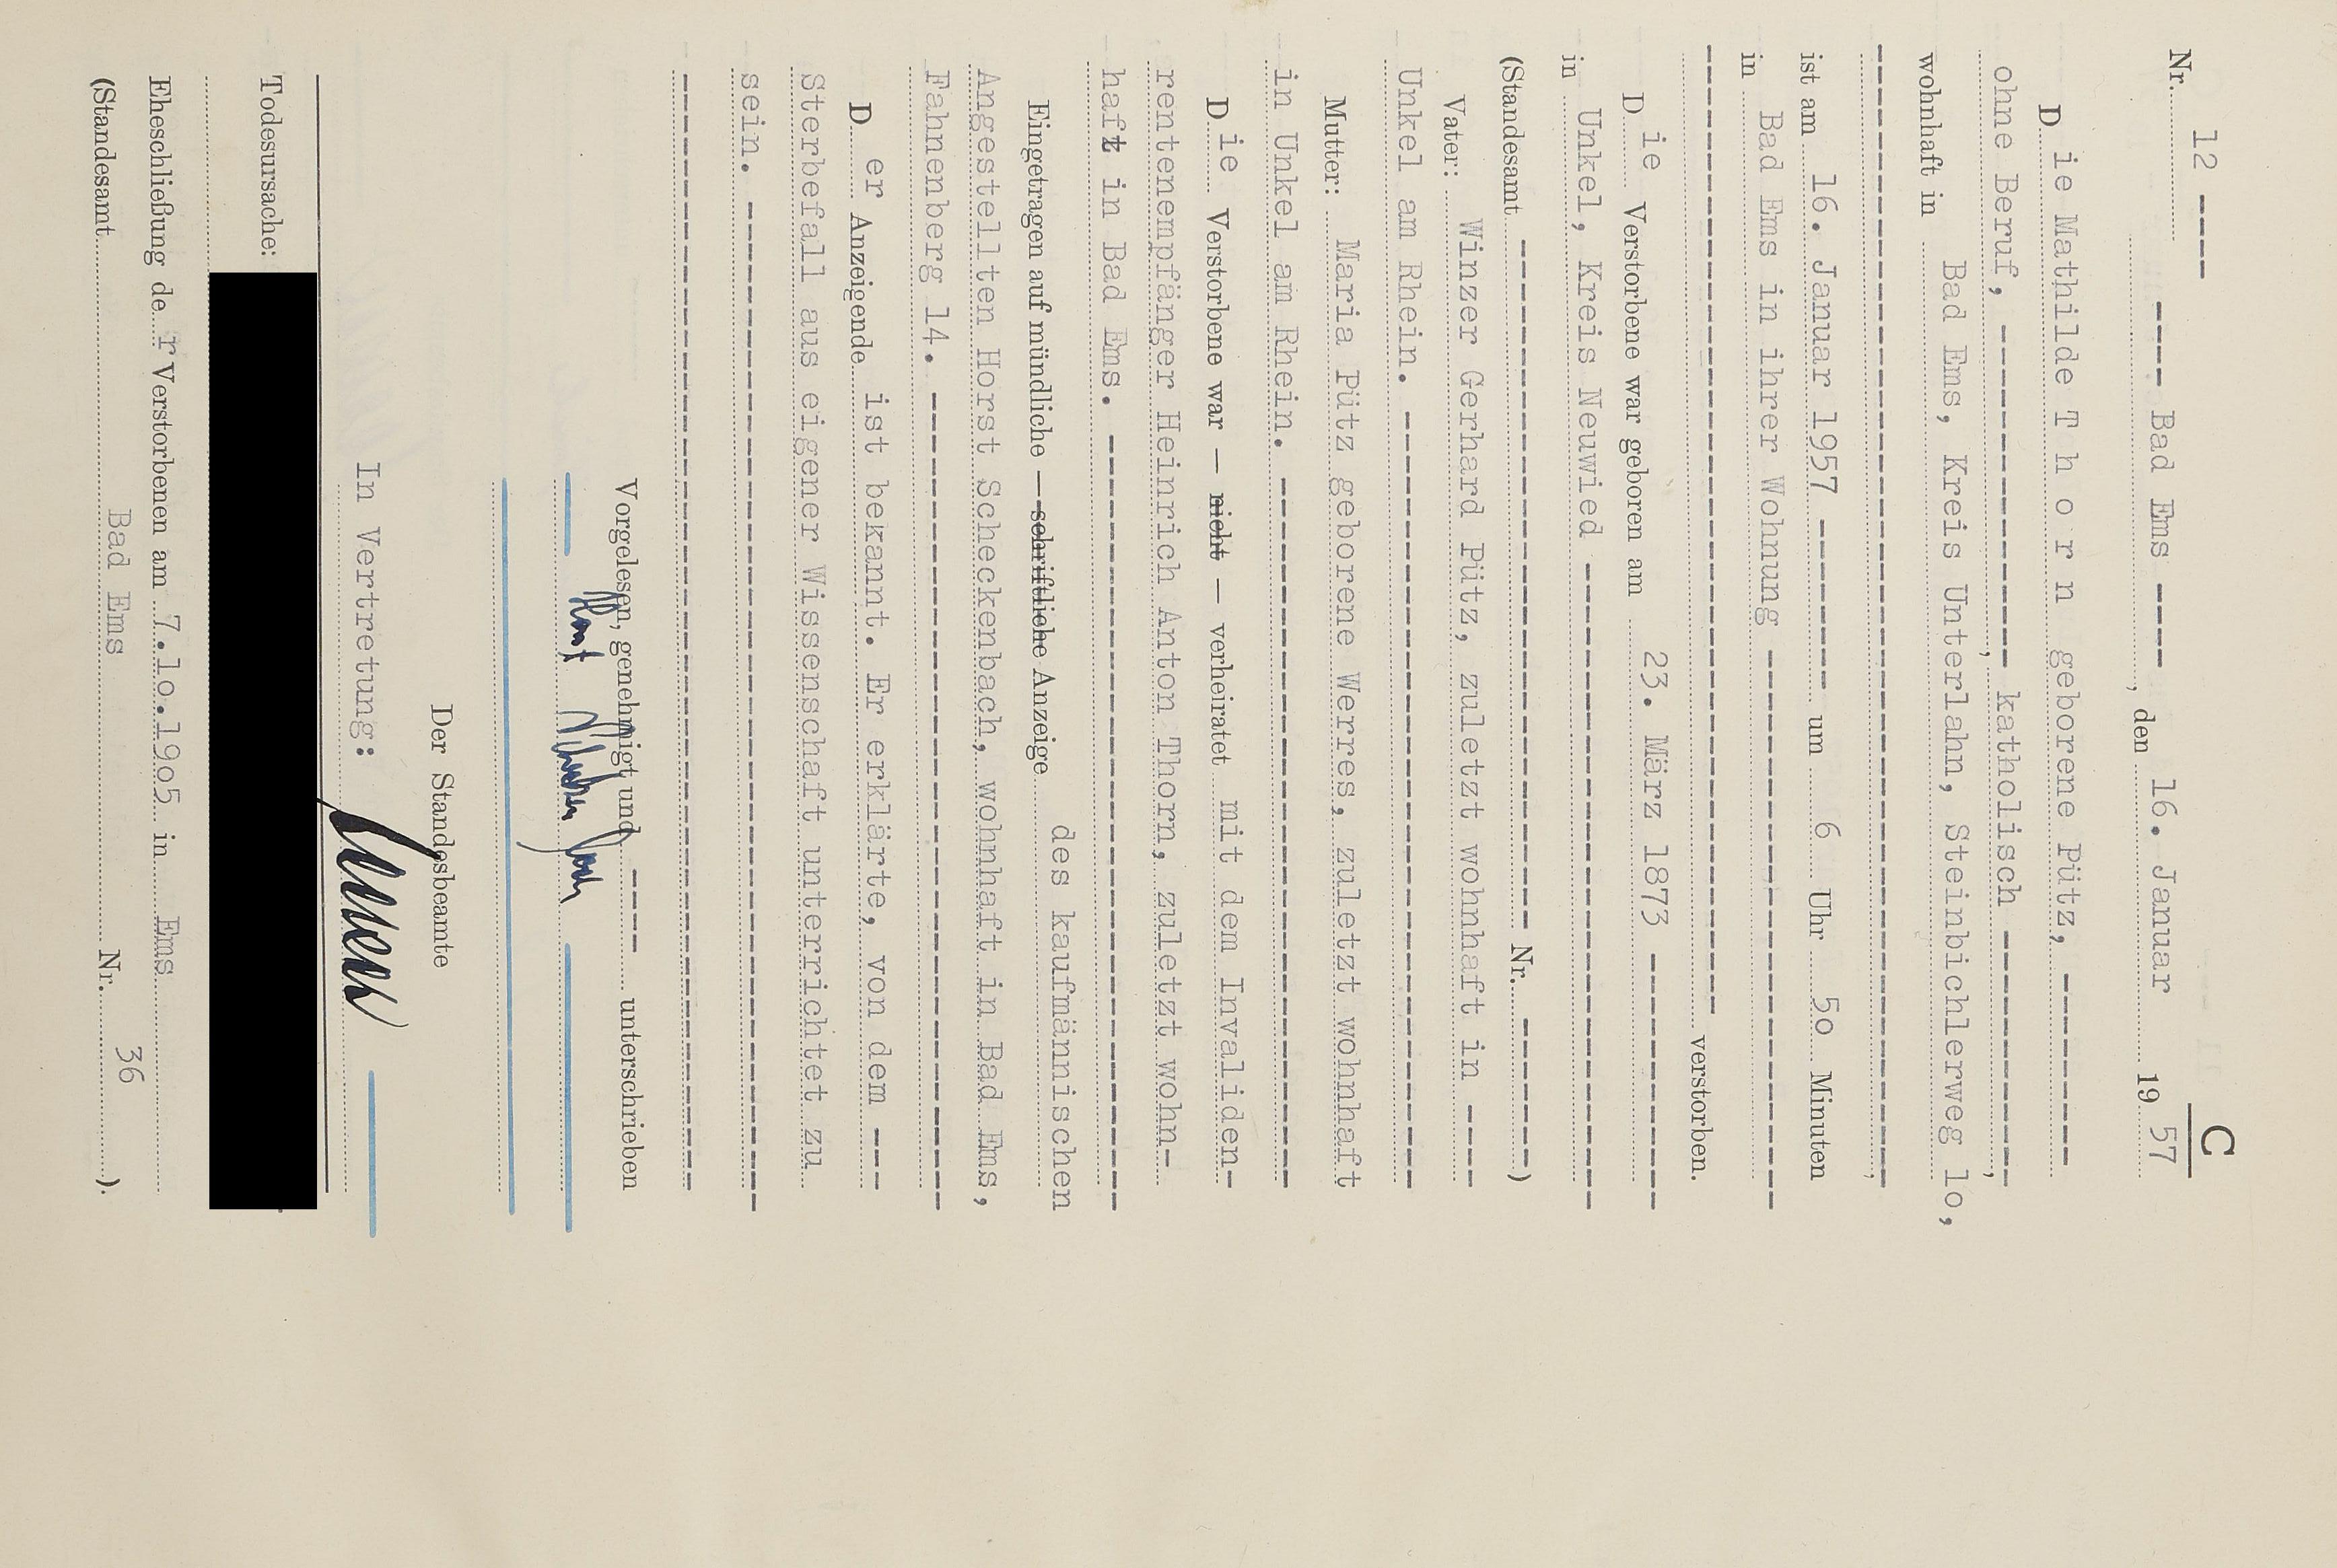 C
Nr. 12 ----
---- Bad Ems ----, den 16. Januar 1957
Die Mathilde T h o r n geborene Pütz, --------
ohne Beruf, --------------, katholisch ----------,
wohnhaft in Bad Ems, Kreis Unterlahn, Steinbichlerweg lo,
ist am 16. Januar 1957 ------- um 6 Uhr 5o Minuten
in Bad Ems in ihrer Wohnung ----------------------
verstorben.
Die Verstorbene war geboren am 23. März 1873 ----------
in Unkel, Kreis Neuwied --------------------------
(Standesamt ---------------------------- Nr. ------)
Vater: Winzer Gerhard Pütz, zuletzt wohnhaft in ----
Unkel am Rhein. --------------------------------
Mutter: Maria Pütz geborene Werres, zuletzt wohnhaft
in Unkel am Rhein. -----------------------------
Die Verstorbene war — nicht — verheiratet mit dem Invaliden-
rentenempfänger Heinrich Anton Thorn, zuletzt wohn-
haft in Bad Ems. -------------------------------
Eingetragen auf mündliche — schriftliche Anzeige des kaufmännischen
Angestellten Horst Scheckenbach, wohnhaft in Bad Ems,
Fahnenberg 14. ---------------------------------
Der Anzeigende ist bekannt. Er erklärte, von dem ---
Sterbefall aus eigener Wissenschaft unterrichtet zu
sein. ------------------------------------------
Vorgelesen, genehmigt und ---- unterschrieben
Horst Scheckenbach
Der Standesbeamte
In Vertretung:
Todesursache:
Eheschließung der Verstorbenen am 7.lo.19o5 in Ems
(Standesamt Bad Ems Nr. 36 ).